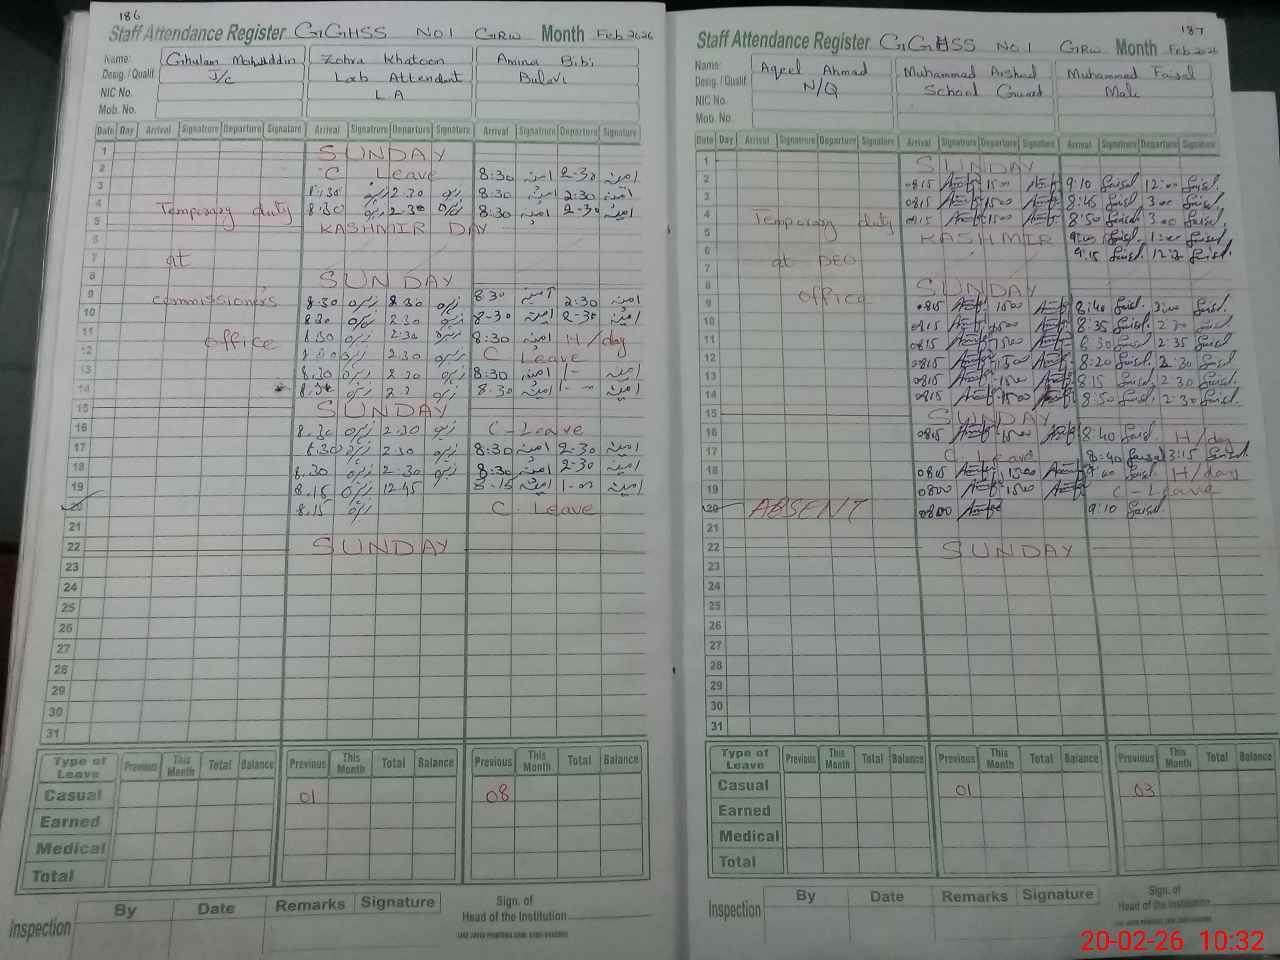 186
Staff Attendance Register GGHSS No 1 GRW Month Feb 2026
Name: Ghulam Mohuddin Zohra Khatoon Amina Bibi
Desig./Qualif. J/c Lab Attendent Bulavi
NIC No. L A
Mob. No.
Date Day Arrival Signatrure Departure Signature Arrival Signatrure Departure Signature Arrival Signatrure Departure Signature
1 SUNDAY
2 C Leave 8:30 امینہ 2-30 امینہ
3 8:30 2:30 8:30 امینہ 2:30 امینہ
4 Temporary duty 8:30 2-30 8:30 امینہ 2-30 امینہ
5 KASHMIR DAY
6
7 at
8 SUNDAY
9 commissioner's 8.30 2.30 8:30 امینہ 2:30 امینہ
10 8.30 2.30 8-30 امینہ 2-30 امینہ
11 office 8.30 2:30 8:30 امینہ H/day
12 2.30 C Leave
13 8.30 2.30 8:30 امینہ امینہ
14 8:30 امینہ امینہ
15 SUNDAY
16 8.30 2:30 C-Leave
17 8.30 2:30 8:30 امینہ 2-30 امینہ
18 8.30 2:30 8:30 امینہ 2-30 امینہ
19 8.15 12:45 امینہ امینہ
20 8.15 C. Leave
21
22 SUNDAY
23
24
25
26
27
28
29
30
31
Type of Leave Previous This Month Total Balance Previous This Month Total Balance Previous This Month Total Balance
Casual 01 08
Earned
Medical
Total
Inspection By Date Remarks Signature Sign. of Head of the Institution
187
Staff Attendance Register GGHSS No 1 GRW Month Feb 2026
Name: Aqeel Ahmad Muhammad Arshad Muhammad Faisal
Desig./Qualif N/Q School Guard Mali
NIC No.
Mob. No.
Date Day Arrival Signatrure Departure Signature Arrival Signatrure Departure Signature Arrival Signatrure Departure Signature
1 SUNDAY
2 0815 1500 9:10 faisal 12:00 faisal.
3 0815 1500 8:45 faisal 3:00 faisal.
4 Temporary duty 0815 1500 8:50 faisal 3:00 faisal.
5 KASHMIR faisal. 1:00 faisal
6 at DEO 9:15 faisal. faisal.
7
8 SUNDAY
9 office 0815 1500 8:40 faisal. 3:00 faisal.
10 0815 1500 8:35 faisal.
11 0815 1500 8:30 faisal 2:35 faisal
12 0815 1500 8:20 faisal. 2:30 faisal
13 0815 1500 8 15 faisal. 2 30 faisal.
14 0815 1500 8:50 faisal. 2:30 faisal.
15 SUNDAY
16 0815 1500 8:40 faisal. H/day
17 C. Leave 8:40 faisal 3:15 faisal.
18 0805 1500 faisal. H/day
19 0800 1500 C-Leave
20 ABSENT 0800 9:10 faisal.
21
22 SUNDAY
23
24
25
26
27
28
29
30
31
Type of Leave Previous This Month Total Balance Previous This Month Total Balance Previous This Month Total Balance
Casual 01 03
Earned
Medical
Total
Inspection By Date Remarks Signature Sign. of Head of the Institution
20-02-26 10:32